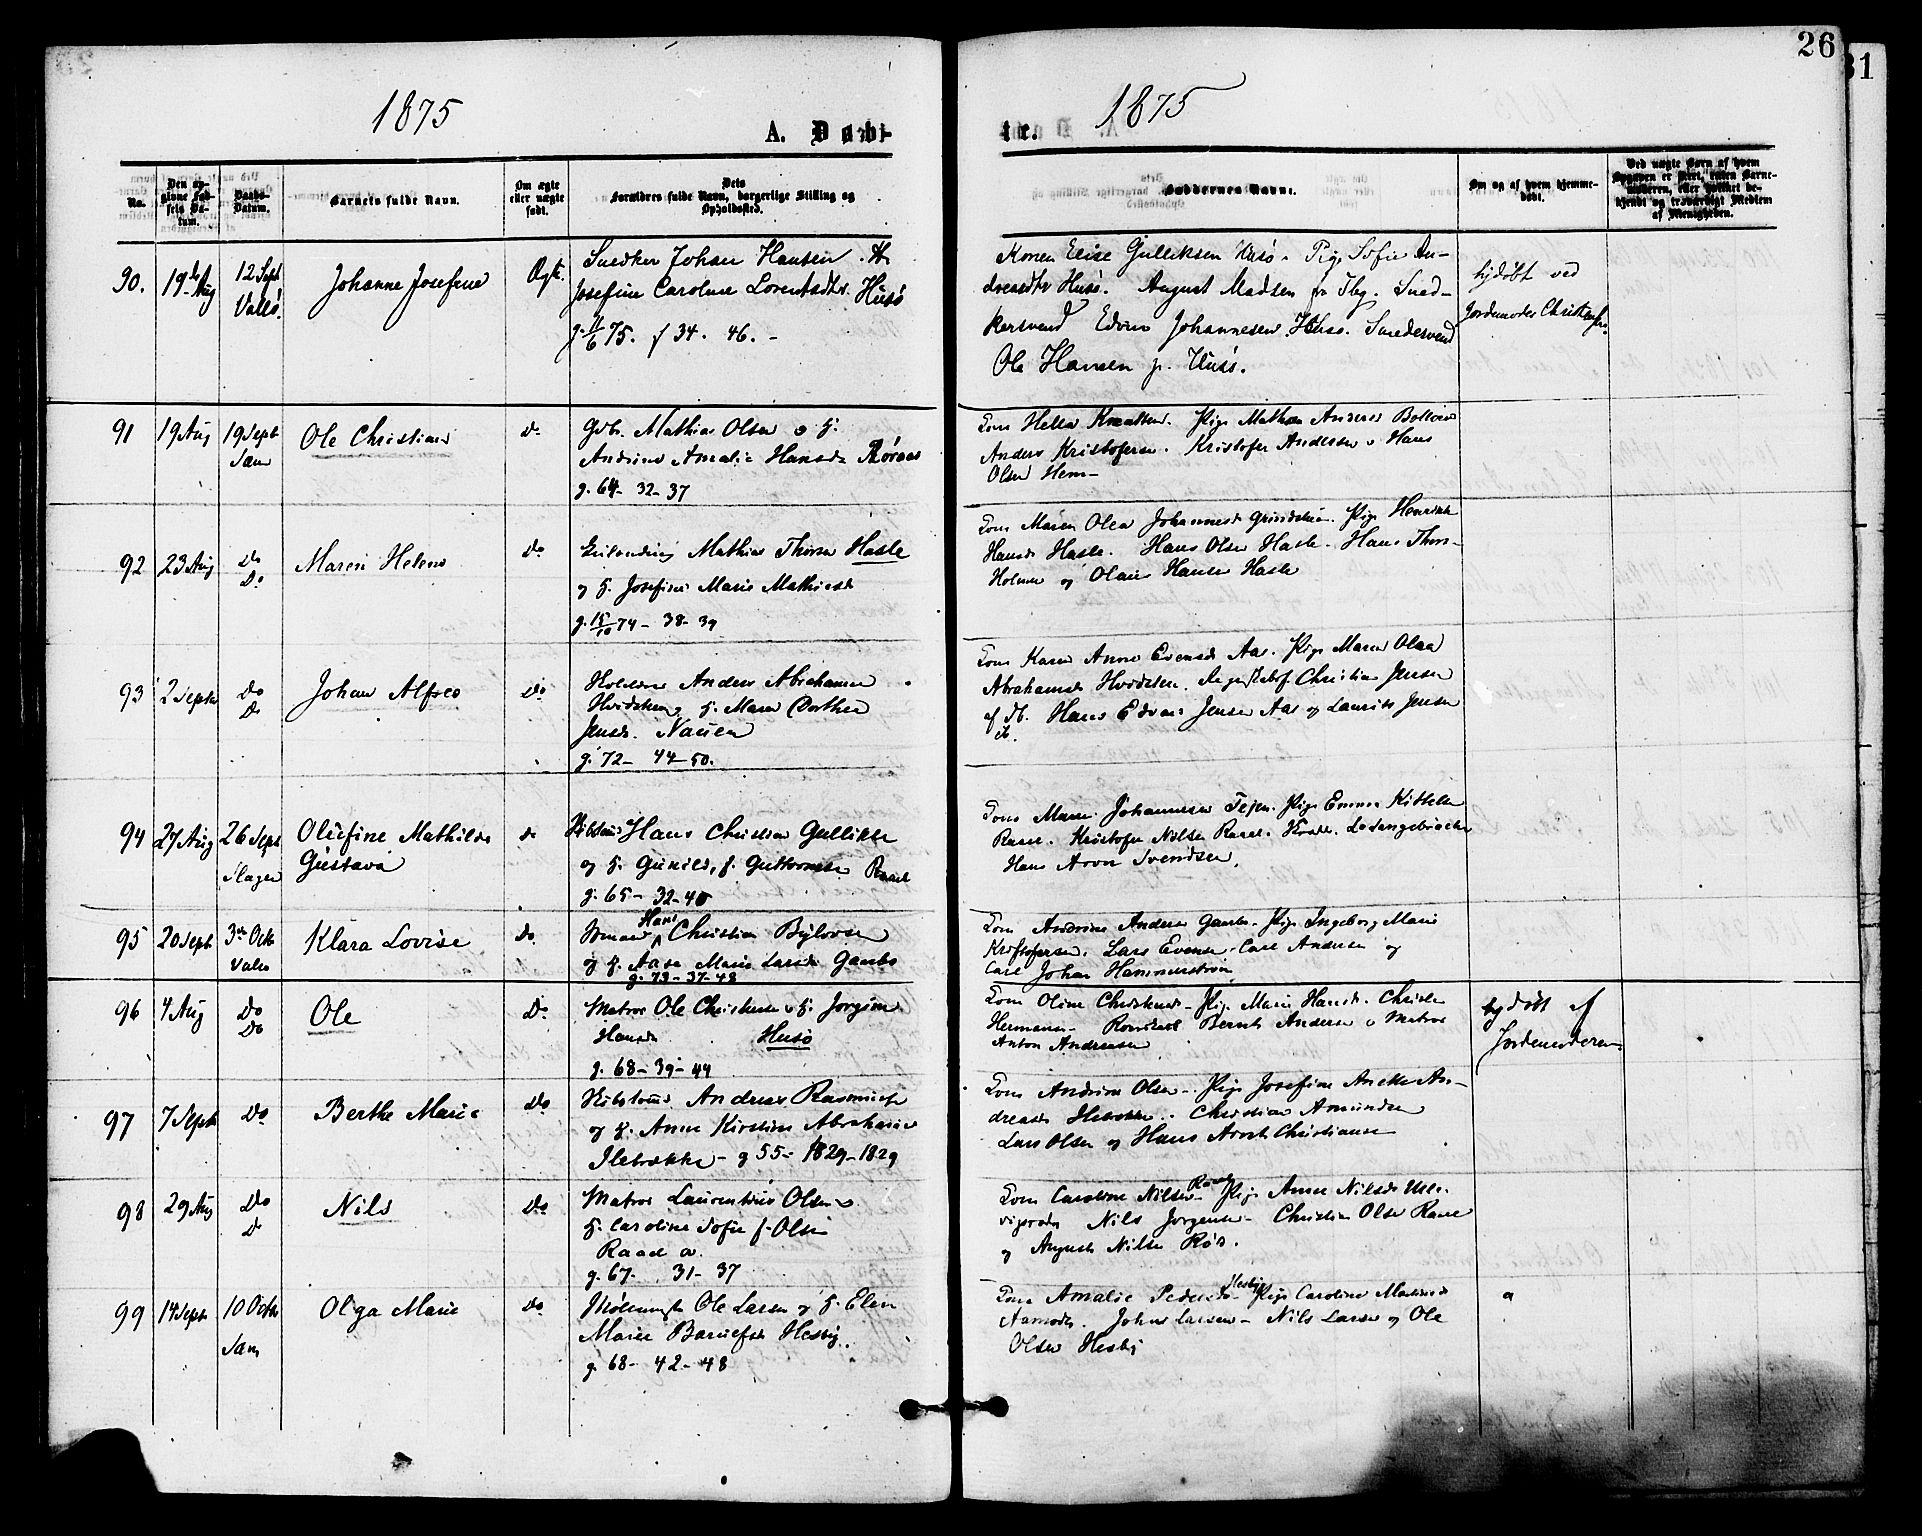 26
31
1875
1875
A. Døb-
te.
No.
Den op-
givne Fød-
sels Da-
tum.
Daabs-
Datum.
Barnets fulde Navn.
Om ægte
eller uægte
født.
Dets
Forældres fulde Navn, borgerlige Stilling og
Opholdssted.
Faddernes Navne.
Om og af hvem hjemme-
døbt.
Ved uægte Børn af hvem
Opgaven er skeet, enten Barne-
moderen, eller hvilket be-
kjendt og troværdigt Medlem
af Menigheden.
90.
19de Aug
12 Sept
Vallø.
Johanne Josefine
Ægte
Snedker Johan Hansen
Josefine Caroline Lorentsdtr. Husø
g. 11/6 75. f 34. 46. -
Konen Elise Gulliksen Husø. Pige Sofie An-
dreasdtr Husø. August Madsen fra Tbg. Sned-
kersvend Edvin Johannesen Husø. Smedesvend
Ole Hansen p. Husø.
hjdøbt ved
Jordemoder Christensen.
91
19 Aug
19 Sept
Sem
Ole Christian
Do
Gvb. Mathias Olsen o h.
Andrine Amalie Hansd. Røraas
g. 64 - 32 - 37
Kone Helle Knudsen. Pige Mathea Anders
Anders Kristofersen. Kristofer Andersen o Hans
Olsen Hem -
92
23 Aug
Do
Do
Maren Helene
Do
Mathias Thorsen Hasle
og h. Josefine Marie Mathiesd.
g. 15/10 74 - 38 - 39
Kone Maren Olea Johannesd. Pige Henrikke
Hansd. Hasle. Hans Olsen Hasle. Hans Thors-
Holmen og Olaus Hansen Hasle
93
2 Septr
Do
Do
Johan Alfred
Do
Anders Abrahamsen
Hvidsten og h. Maren Dorthea
Jensd. Nauen
g. 72 - 44 - 50.
Kone Karen Anne Evensd. Aas. Pige Maren Olea
Abrahamsd. Hvidsten. Christian Jensen
Hans Edvard Jensen Aas og Laurits Jensen
94
27 Aug
26 Sept
Slagen
Olufine Mathilde
Gustava
do
Hans Christian Gulliksen
og h. Gunild, f. Guttormsen Raael
g. 65 - 32 - 40
Kone Maren Johannesen Tejen. Pige Emma Kittelsen
Raael. Kristofer Nilsen Raael.
Hans Arvn Svendsen.
95
20 Sept
3die Oct
Valø
Klara Lovise
Do
Hans
Christian
og h. Aase Marie Larsd. Gaubo
g. 73 - 37 - 48
Kone Andrine Anders Gaubo. Pige Ingeborg Marie
Kristofersen. Lars Evensen. Carl Andersen og
Carl Johan Hammerstrøm
96
4 Aug
Do
Do
Ole
Do
Matros Ole Christensen o h. Jørgine
Hansd. Husø
g. 68 - 39 - 44
Kone Oline Christensd. Pige Marie Hansd. Christen
Hermansen. Bernt Andersen o Matros
Anton Andreasen
hjdøbt af
Jordemoderen.
97
7 Sept
Do
Berthe Marie
Do
Andreas Rasmussen
og h. Anne Kirstine Abrahams
Ilebrekke - g 55 - 1829 - 1829
Kone Andrine Olsen. Pige Josefine Anette An-
dreasd. Ilebrekke. Christian Amundsen
Lars Olsen og Hans Arvst Christiansen
98
29 Aug
Do
D
Nils
Do
Matros Laurentius Olsen o
h. Caroline Sofie f. Olsen
Raael
g. 67. 31 - 37
Kone Caroline Nilsen Raael Pige Anne Nilsd.
Nils Jørgensen - Christian Olsen Raael
og August Nilsen Røs.
99
14 Sept
10 Octr
Sem
Olga Marie
Do
Ole Larsen og h. Elen
Marie Hesby.
g. 68 - 42 - 48
Kone Amalie Pedersd. Hesby Pige Caroline
Aamodt. Johns Larsen - Nils Larsen og Ole
Olsen Hesby